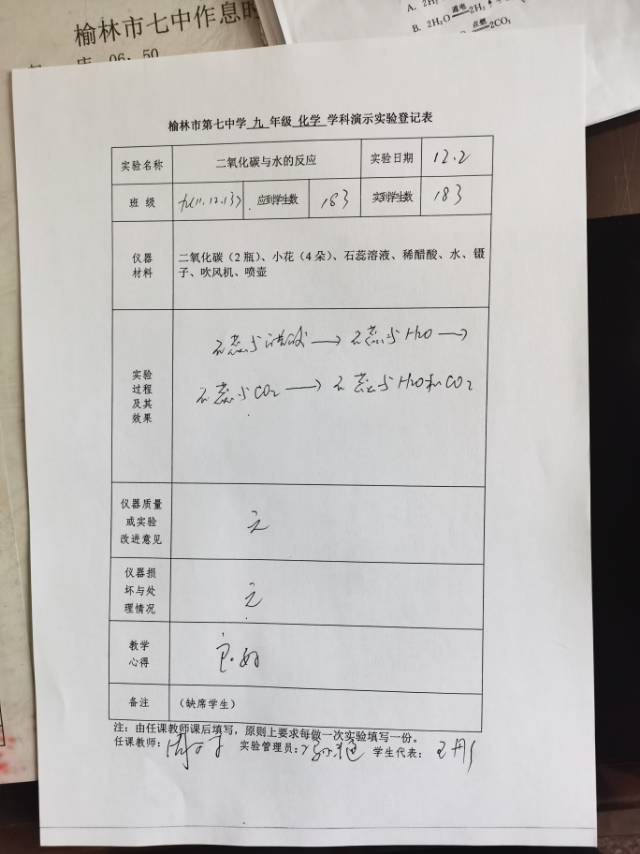 榆林市七中作息时
06:50
A. 2H₂
B. 2H₂O 通电 2H₂↑+
点燃 2CO₂
榆林市第七中学 九 年级 化学 学科演示实验登记表
实验名称 二氧化碳与水的反应 实验日期 12.2
班 级 九(11.12.13) 应到学生数 183 实到学生数 183
仪器
材料
二氧化碳（2 瓶）、小花（4 朵）、石蕊溶液、稀醋酸、水、镊
子、吹风机、喷壶
实验
过程
及其
效果
石蕊与醋酸 → 石蕊与H₂O →
石蕊与CO₂ → 石蕊与H₂O和CO₂
仪器质量
或实验
改进意见
无
仪器损
坏与处
理情况
无
教学
心得
良好
备注 （缺席学生）
注：由任课教师课后填写，原则上要求每做一次实验填写一份。
任课教师： 实验管理员： 学生代表：